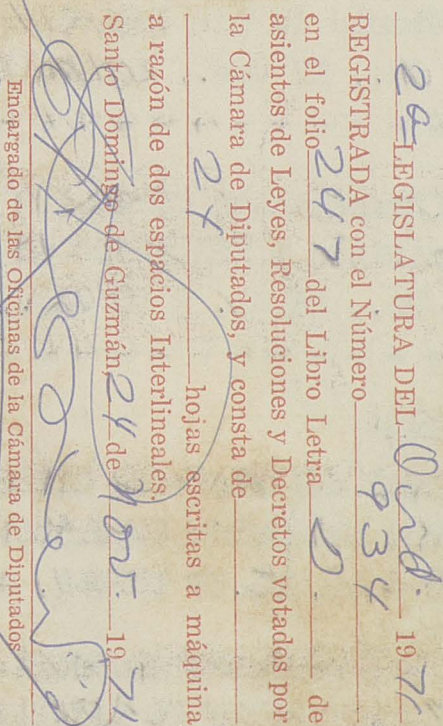 2a LEGISLATURA DEL Ord. 1971
REGISTRADA con el Número 934
en el folio 247 del Libro Letra D de
asientos de Leyes, Resoluciones y Decretos votados por
la Cámara de Diputados, y consta de
24 hojas escritas a máquina
a razón de dos espacios Interlineales.
Santo Domingo de Guzmán, 24 de Nov. 1971
Encargado de las Oficinas de la Cámara de Diputados